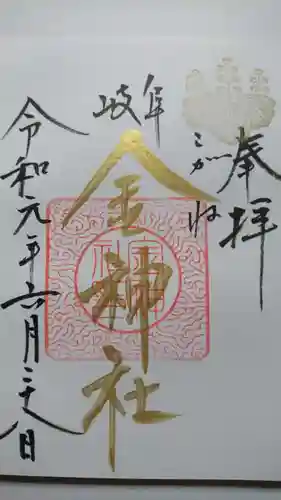 奉拝
こがね
岐阜
金神社
令和元年六月二十八日